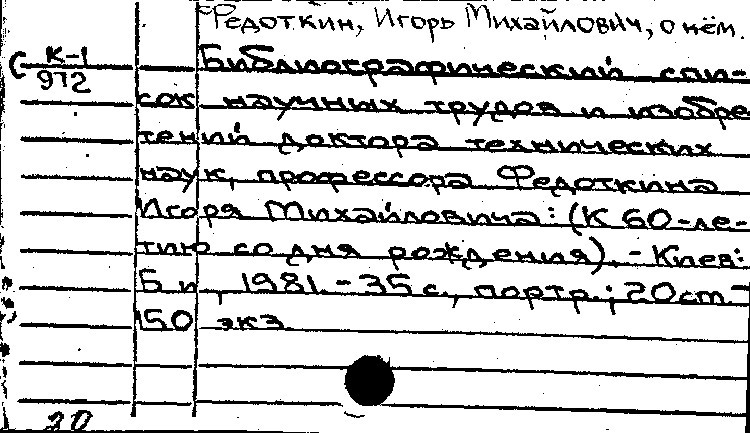 Федоткин, Игорь Михайлович, о нём.
С К-1
972
Библиографический спи-
сок научных трудов и изобре
тений доктора технических
наук, профессора Федоткина
Игоря Михайловича: (К 60-ле-
тию со дня рождения). - Киев:
Б и, 1981. - 35 с., портр.; 20 см -
150 экз.
20